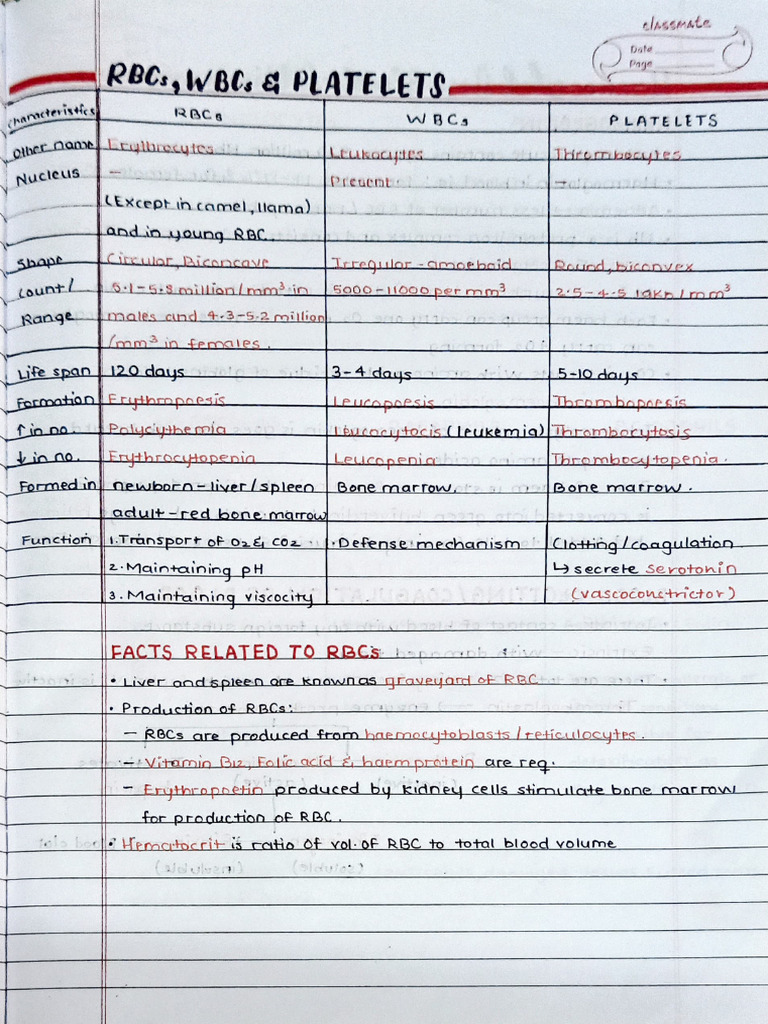 classmate
Date
Page
RBCs, WBCs & PLATELETS
Characteristics RBCs WBCs PLATELETS
Other name Erythrocytes Leukocytes Thrombocytes
Nucleus — Present
(Except in camel, llama)
and in young RBC.
Shape Circular, Biconcave Irregular-amoeboid Round, biconvex
Count/ 5.1-5.8 million/mm³ in 5000-11000 per mm³ 2.5-4.5 lakh/mm³
Range males and 4.3-5.2 million
/mm³ in females.
Life span 120 days 3-4 days 5-10 days
Formation Erythropoesis Leucopoesis Thrombopoesis
↑ in no. Polycythemia Leucocytocis (leukemia) Thrombocytosis
↓ in no. Erythrocytopenia Leucopenia Thrombocytopenia.
Formed in newborn-liver/spleen Bone marrow. Bone marrow.
adult-red bone marrow
Function 1. Transport of O2 & CO2 • Defense mechanism Clotting/coagulation
2. Maintaining pH ↳ secrete serotonin
3. Maintaining viscocity (vascoconstrictor)
FACTS RELATED TO RBCs
• Liver and spleen are known as graveyard of RBC
• Production of RBCs:
– RBCs are produced from haemocytoblasts/reticulocytes.
– Vitamin B12, Folic acid & haem protein are req.
– Erythropoetin produced by kidney cells stimulate bone marrow
for production of RBC.
• Hematocrit is ratio of vol. of RBC to total blood volume